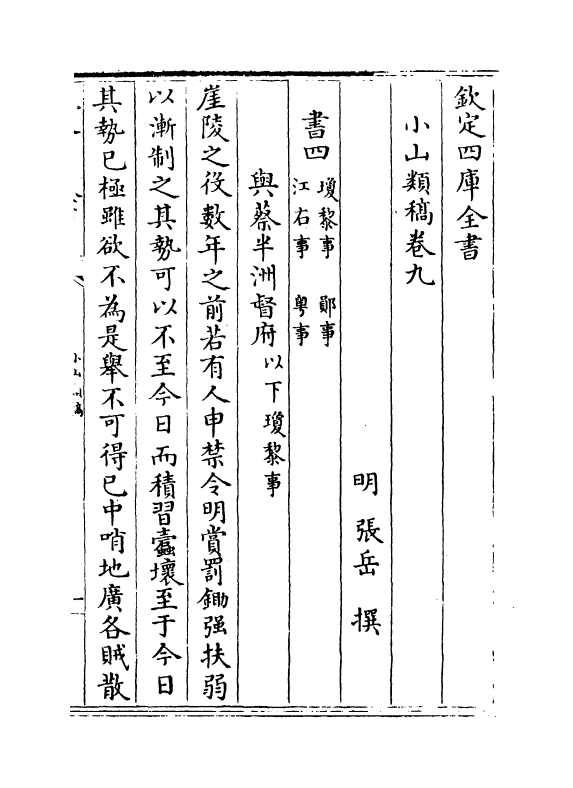 欽定四庫全書
小山類稿卷九
明 張岳 撰
書四 瓊黎事 鄖事
江右事 粤事
與蔡半洲督府 以下瓊黎事
崖陵之役數年之前若有人申禁令明賞罰鋤强扶弱
以漸制之其勢可以不至今日而積習蠧壞至于今日
其勢已極雖欲不為是舉不可得已中哨地廣各賊散